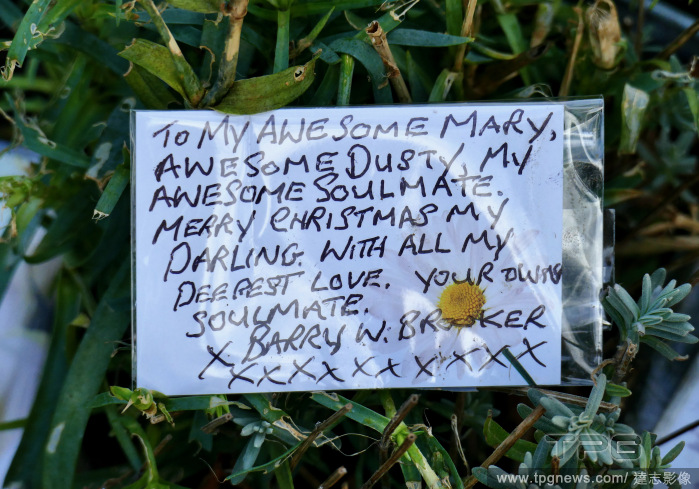 To My AWESOME MARY,
AWESOME DUSTY, MY
AWESOME SOULMATE.
MERRY CHRISTMAS MY
DARLING. WITH ALL MY
DEEPEST LOVE. YOUR OWN
SOULMATE.
BARRY W.
X X X X X X X X X X X
TPG
www.tpgnews.com/ 達志影像